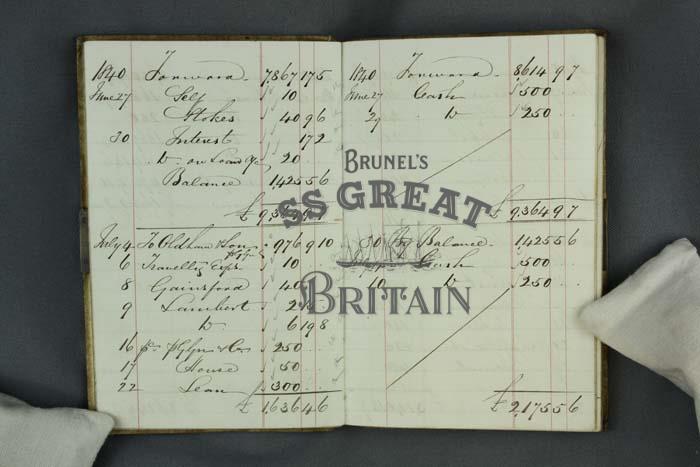 1840 Forward 7,867 17 5
June 27 Self 10
Stokes 40 9 6
30 Interest 1 7 2
Do on Loans &c 20
Balance 1,425 5 6
July 4 To Oldham & Son 976 9 10
6 Travellg Exps 10
8 Gainsford
9 Lambert
Do 6 19 8
16 250
17 House 50
22 Lean 300
£ 1,636 4 6
1840 Forward 8614 9 7
June 27 Cash 500
29 Do 250
£ 9,364 9 7
30 By Balance 1,425 5 6
Cash 500
10 Do 250
£ 2,175 5 6
BRUNEL'S
SS GREAT
BRITAIN